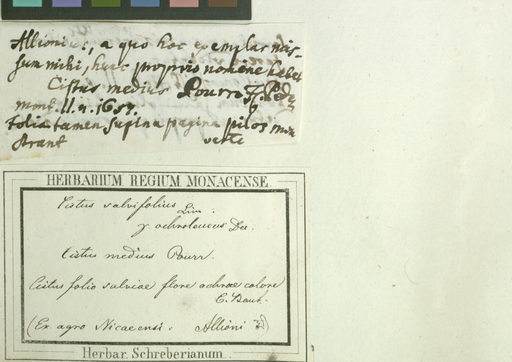 Allioni, a quo hoc exemplar mis-
sum mihi, huic proprio nomine habet
Cistus medius Pourr.
mont. II. n. 1657.
Folia tamen supina pagina pilos mon
strant verte
HERBARIUM REGIUM MONACENSE.
Cistus salvifolius Lin.
γ ochroleucus Dec.
Cistus medius Pourr.
Cistus folio salviae flore ochrae colore
C. Bauh.
(Ex agro Nicaeensi. Allioni
Herbar. Schreberianum.